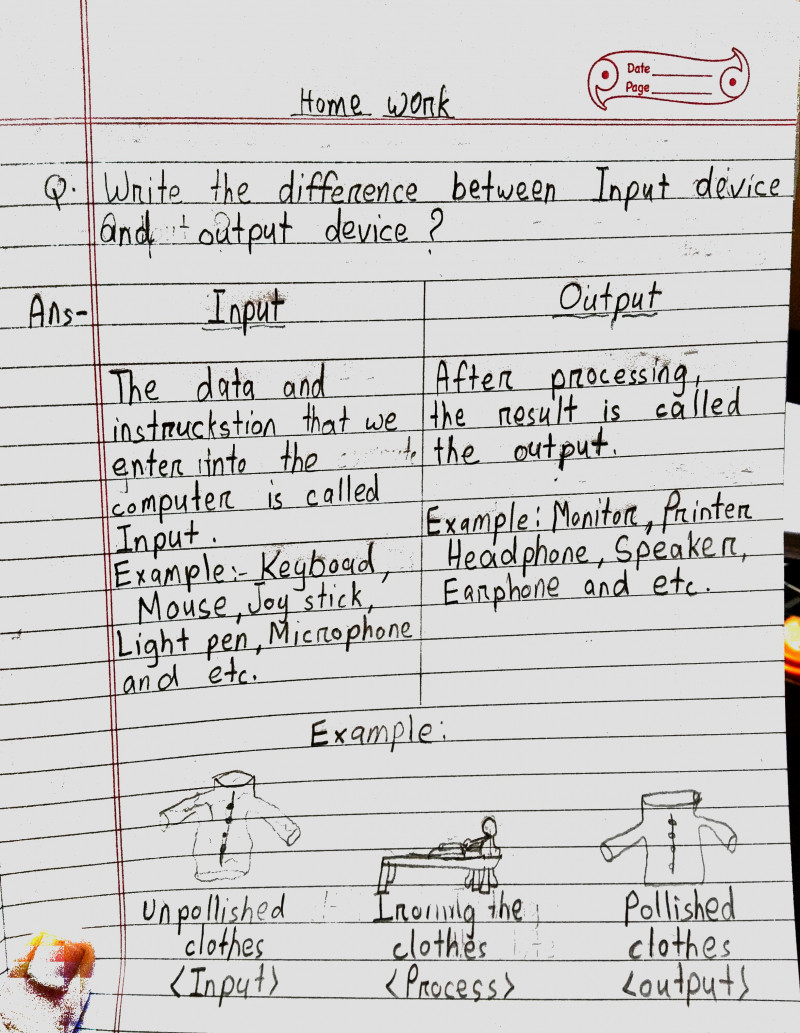 Date
Page
Home work
Q. Write the difference between Input device
and output device ?
Ans- Input
The data and
instruckstion that we
enter into the
computer is called
Input.
Example:- Keyboad,
Mouse, Joy stick,
Light pen, Microphone
and etc.
Output
After processing,
the result is called
the output.
Example: Monitor, Printer
Headphone, Speaker,
Earphone and etc.
Example:
Unpollished
clothes
<Input>
Ironing the
clothes
<Process>
Pollished
clothes
<output>